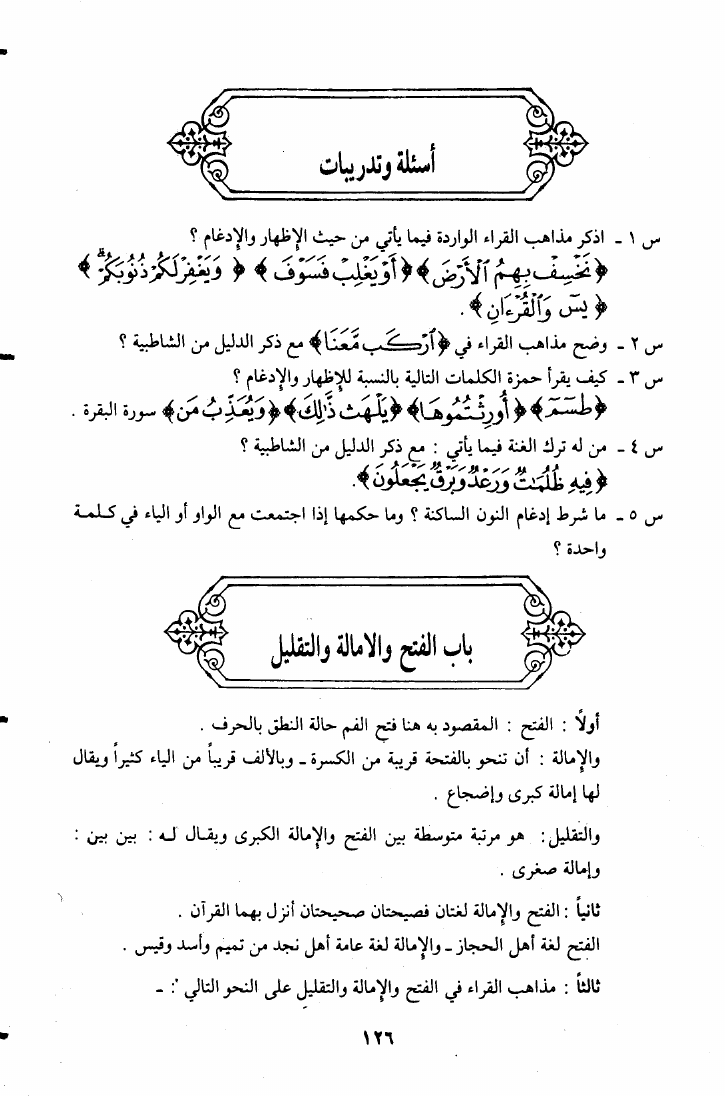 أسئلة وتدريبات
س ١ ـ اذكر مذاهب القراء الواردة فيما يأتي من حيث الإظهار والإدغام ؟
﴿نَخْسِفْ بِهِمُ ٱلْأَرْضَ﴾ ﴿أَوْ يَغْلِبْ فَسَوْفَ﴾ ﴿وَيَغْفِرْ لَكُمْ ذُنُوبَكُمْ ۗ﴾
﴿يسٓ وَٱلْقُرْءَانِ﴾ .
س ٢ ـ وضح مذاهب القراء في ﴿ٱرْكَب مَّعَنَا﴾ مع ذكر الدليل من الشاطبية ؟
س ٣ ـ كيف يقرأ حمزة الكلمات التالية بالنسبة للإظهار والإدغام ؟
﴿طسٓمٓ﴾ ﴿أُورِثْتُمُوهَا﴾ ﴿يَلْهَث ذَّٰلِكَ﴾ ﴿وَيُعَذِّبُ مَن﴾ سورة البقرة .
س ٤ ـ من له ترك الغنة فيما يأتي : مع ذكر الدليل من الشاطبية ؟
﴿فِيهِ ظُلُمَٰتٌ وَرَعْدٌ وَبَرْقٌ يَجْعَلُونَ﴾.
س ٥ ـ ما شرط إدغام النون الساكنة ؟ وما حكمها إذا اجتمعت مع الواو أو الياء في كلمة
واحدة ؟
باب الفتح والامالة والتقليل
أولاً : الفتح : المقصود به هنا فتح الفم حالة النطق بالحرف .
والإمالة : أن تنحو بالفتحة قريبة من الكسرة ـ وبالألف قريباً من الياء كثيراً ويقال
لها إمالة كبرى وإضجاع .
والتقليل: هو مرتبة متوسطة بين الفتح والإمالة الكبرى ويقال له : بين بين :
وإمالة صغرى .
ثانياً : الفتح والإمالة لغتان فصيحتان صحيحتان أنزل بهما القرآن .
الفتح لغة أهل الحجاز ـ والإمالة لغة عامة أهل نجد من تميم وأسد وقيس .
ثالثاً : مذاهب القراء في الفتح والإمالة والتقليل على النحو التالي : ـ
١٢٦